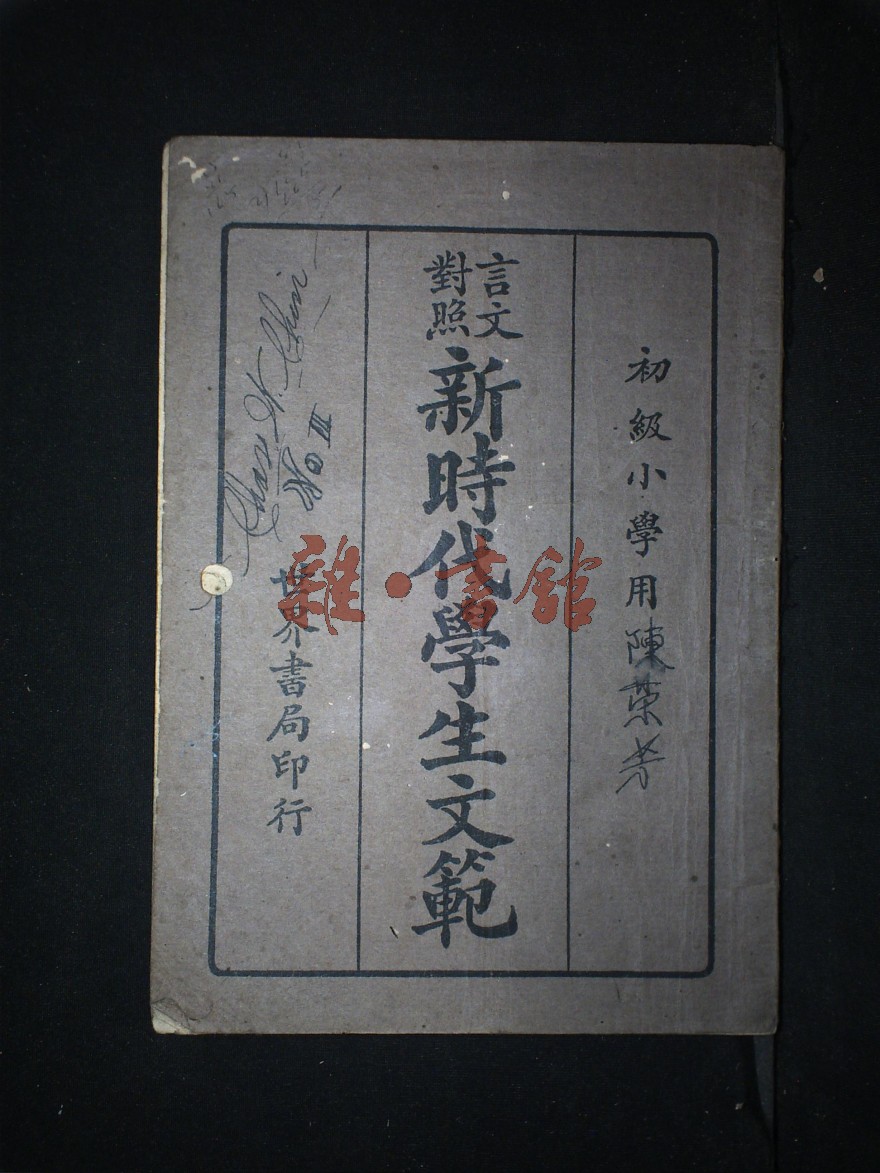 初級小學用
陳榮芳
言文
對照
新時代學生文範
世界書局印行
No III
雜·書館